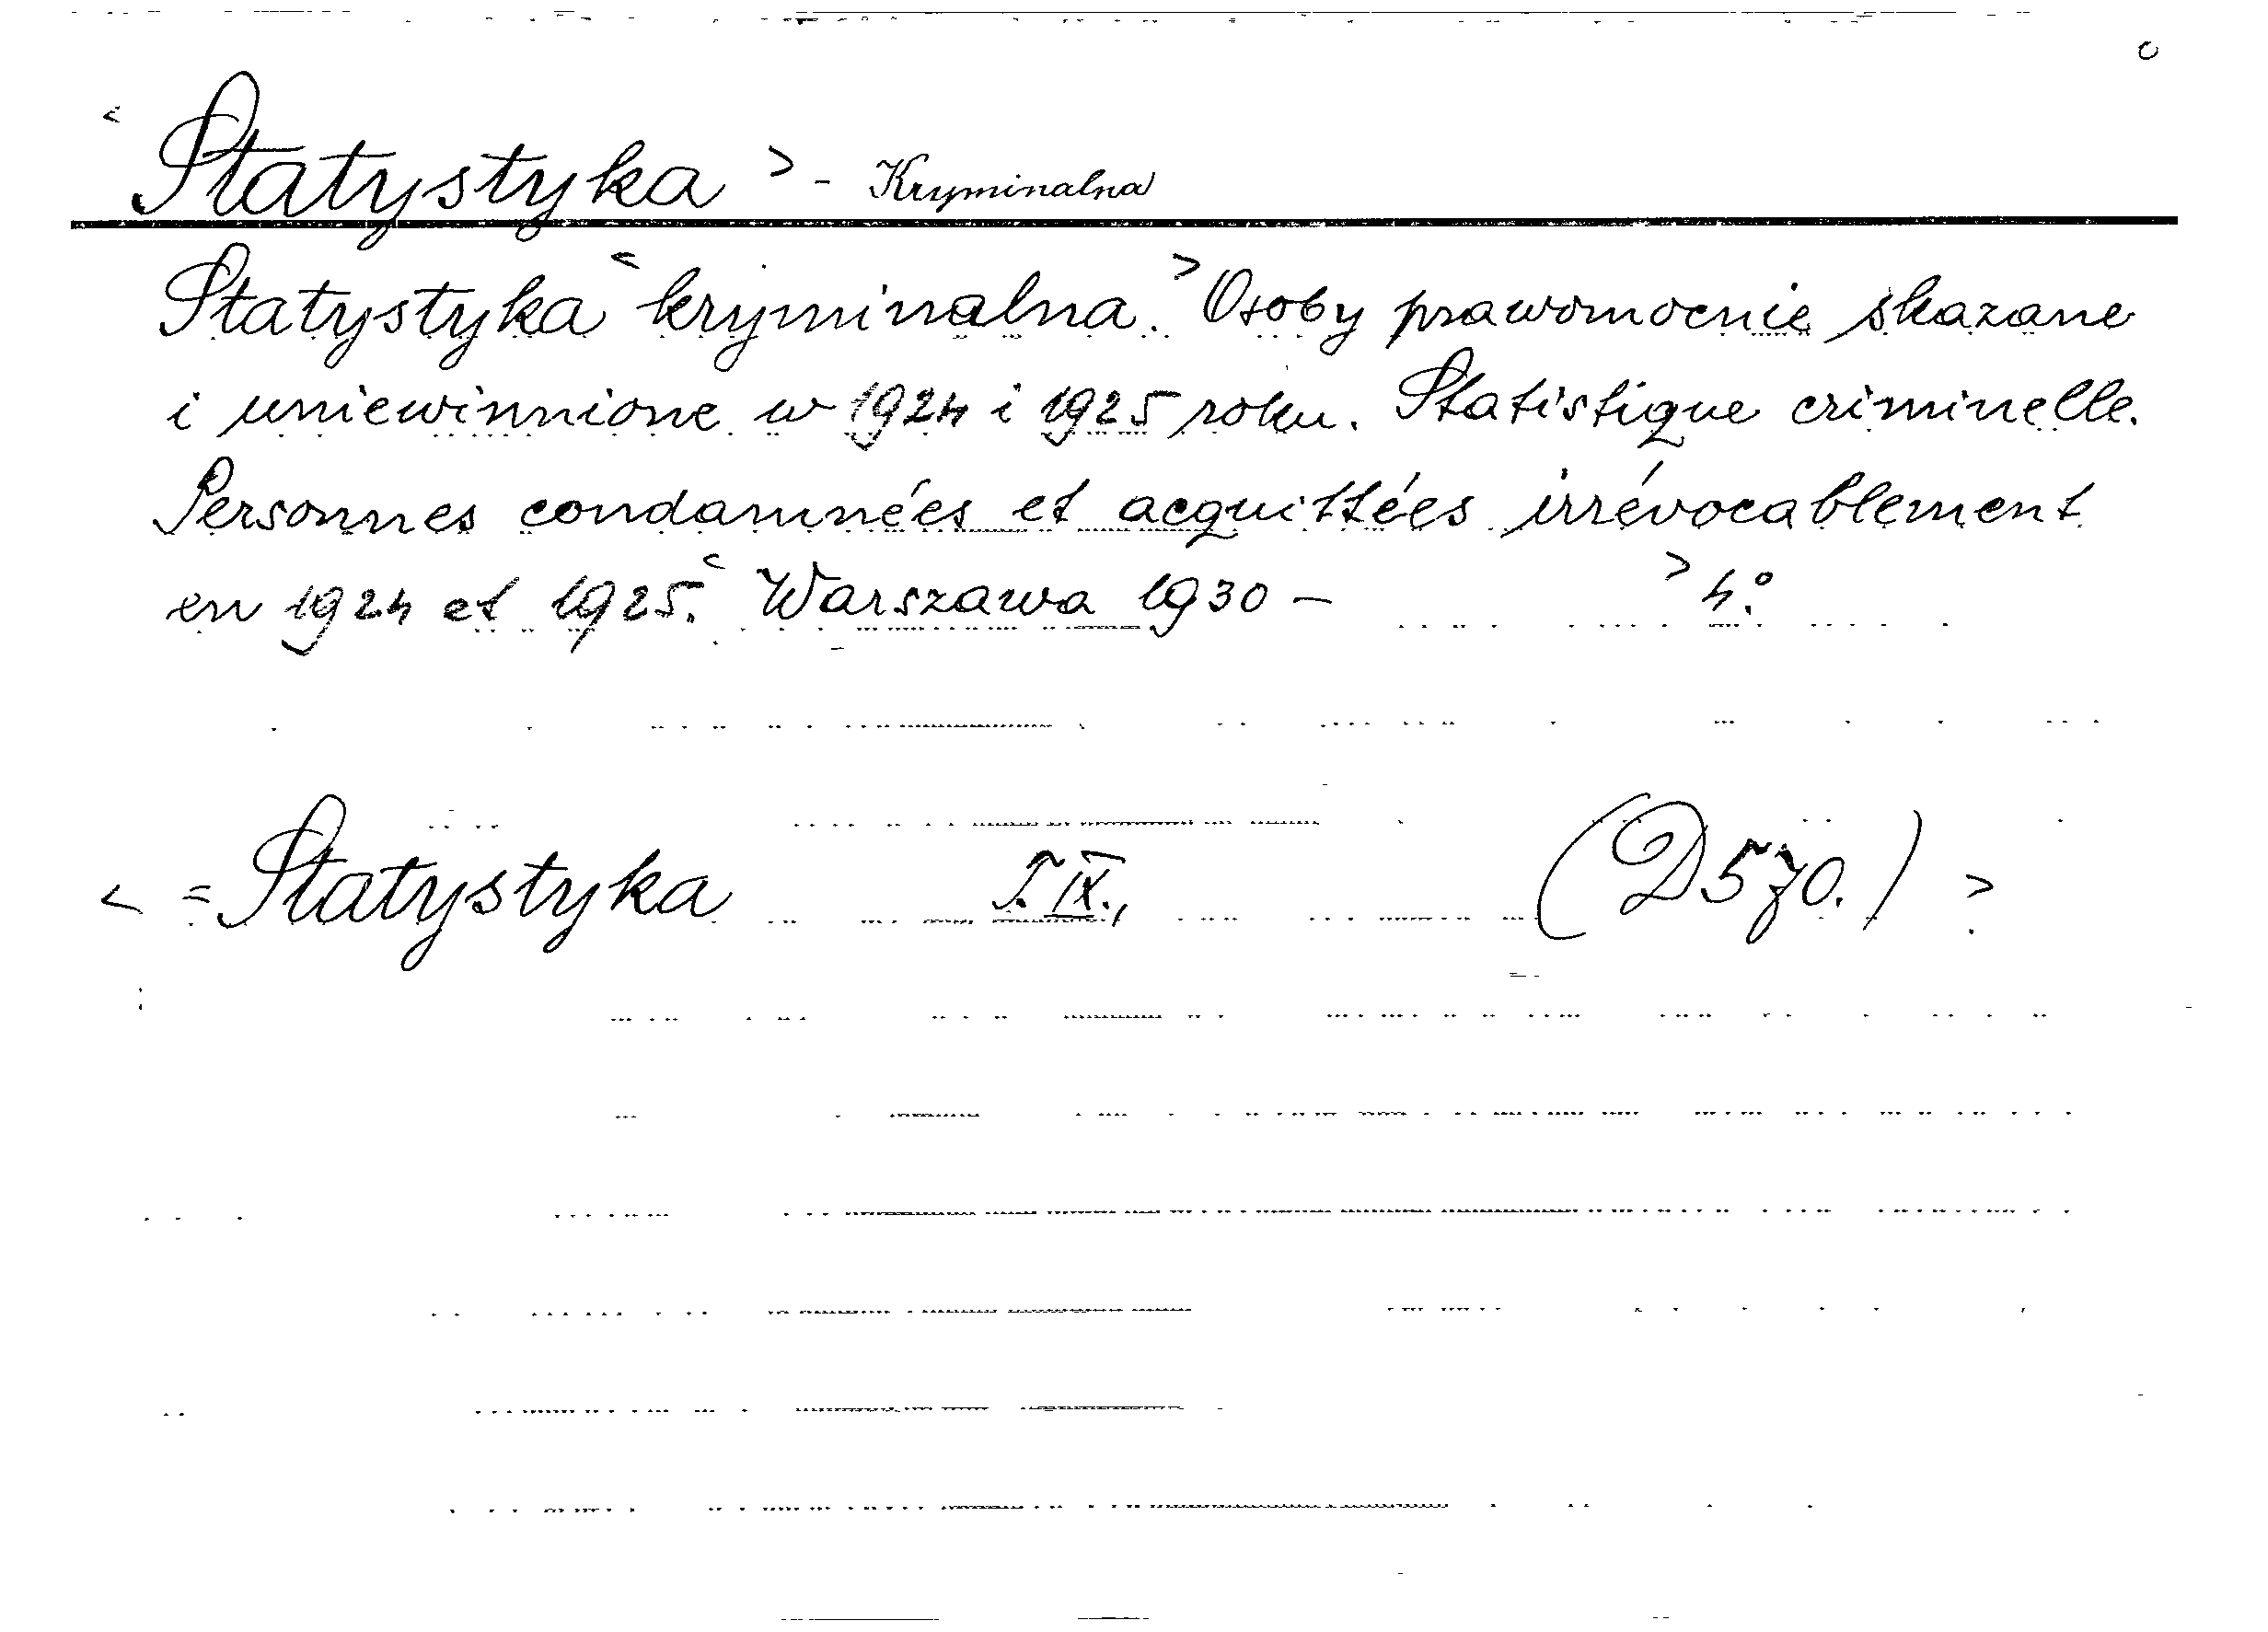 < Statystyka > - Kryminalna
Statystyka < kryminalna. > Osoby prawomocnie skazane
i uniewinnione w 1924 i 1925 roku. Statistique criminelle.
Personnes condamnées et acquittées irrévocablement
en 1924 et 1925. < Warszawa 1930 – > 4º.
< = Statystyka T. IX., (D570.) >